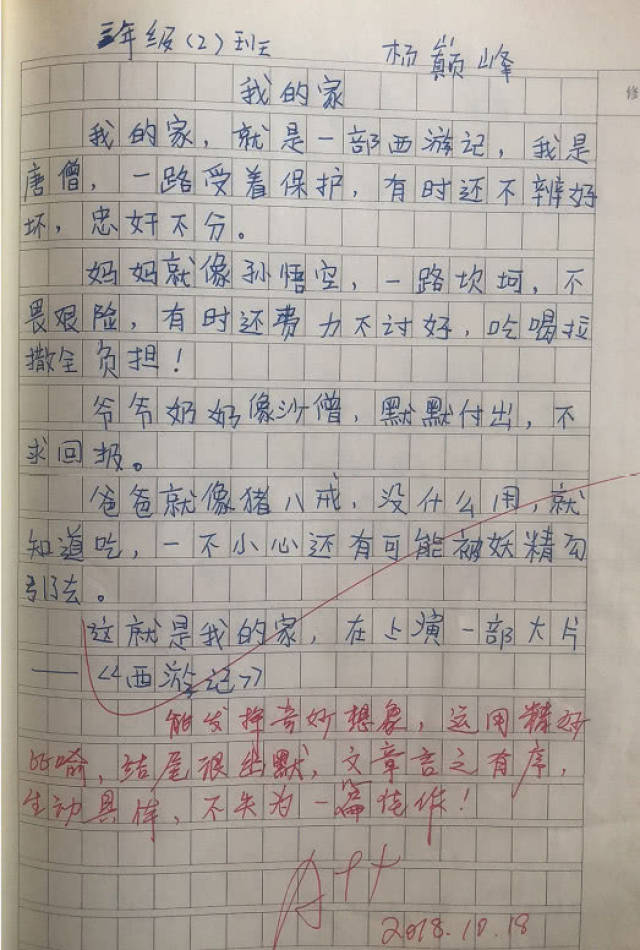 三年级(2)班 杨巅峰
修
我的家
我的家，就是一部西游记，我是
唐僧，一路受着保护，有时还不辨好
坏，忠奸不分。
妈妈就像孙悟空，一路坎坷，不
畏艰险，有时还费力不讨好，吃喝拉
撒全负担！
爷爷奶奶像沙僧，默默付出，不
求回报。
爸爸就像猪八戒，没什么用，就
知道吃，一不小心还有可能被妖精勾
引了去。
这就是我的家，在上演一部大片
——《西游记》
能发挥奇妙想象，运用精妙
比喻，结尾很幽默，文章言之有序，
生动具体，不失为一篇佳作！
A++
2018.10.18